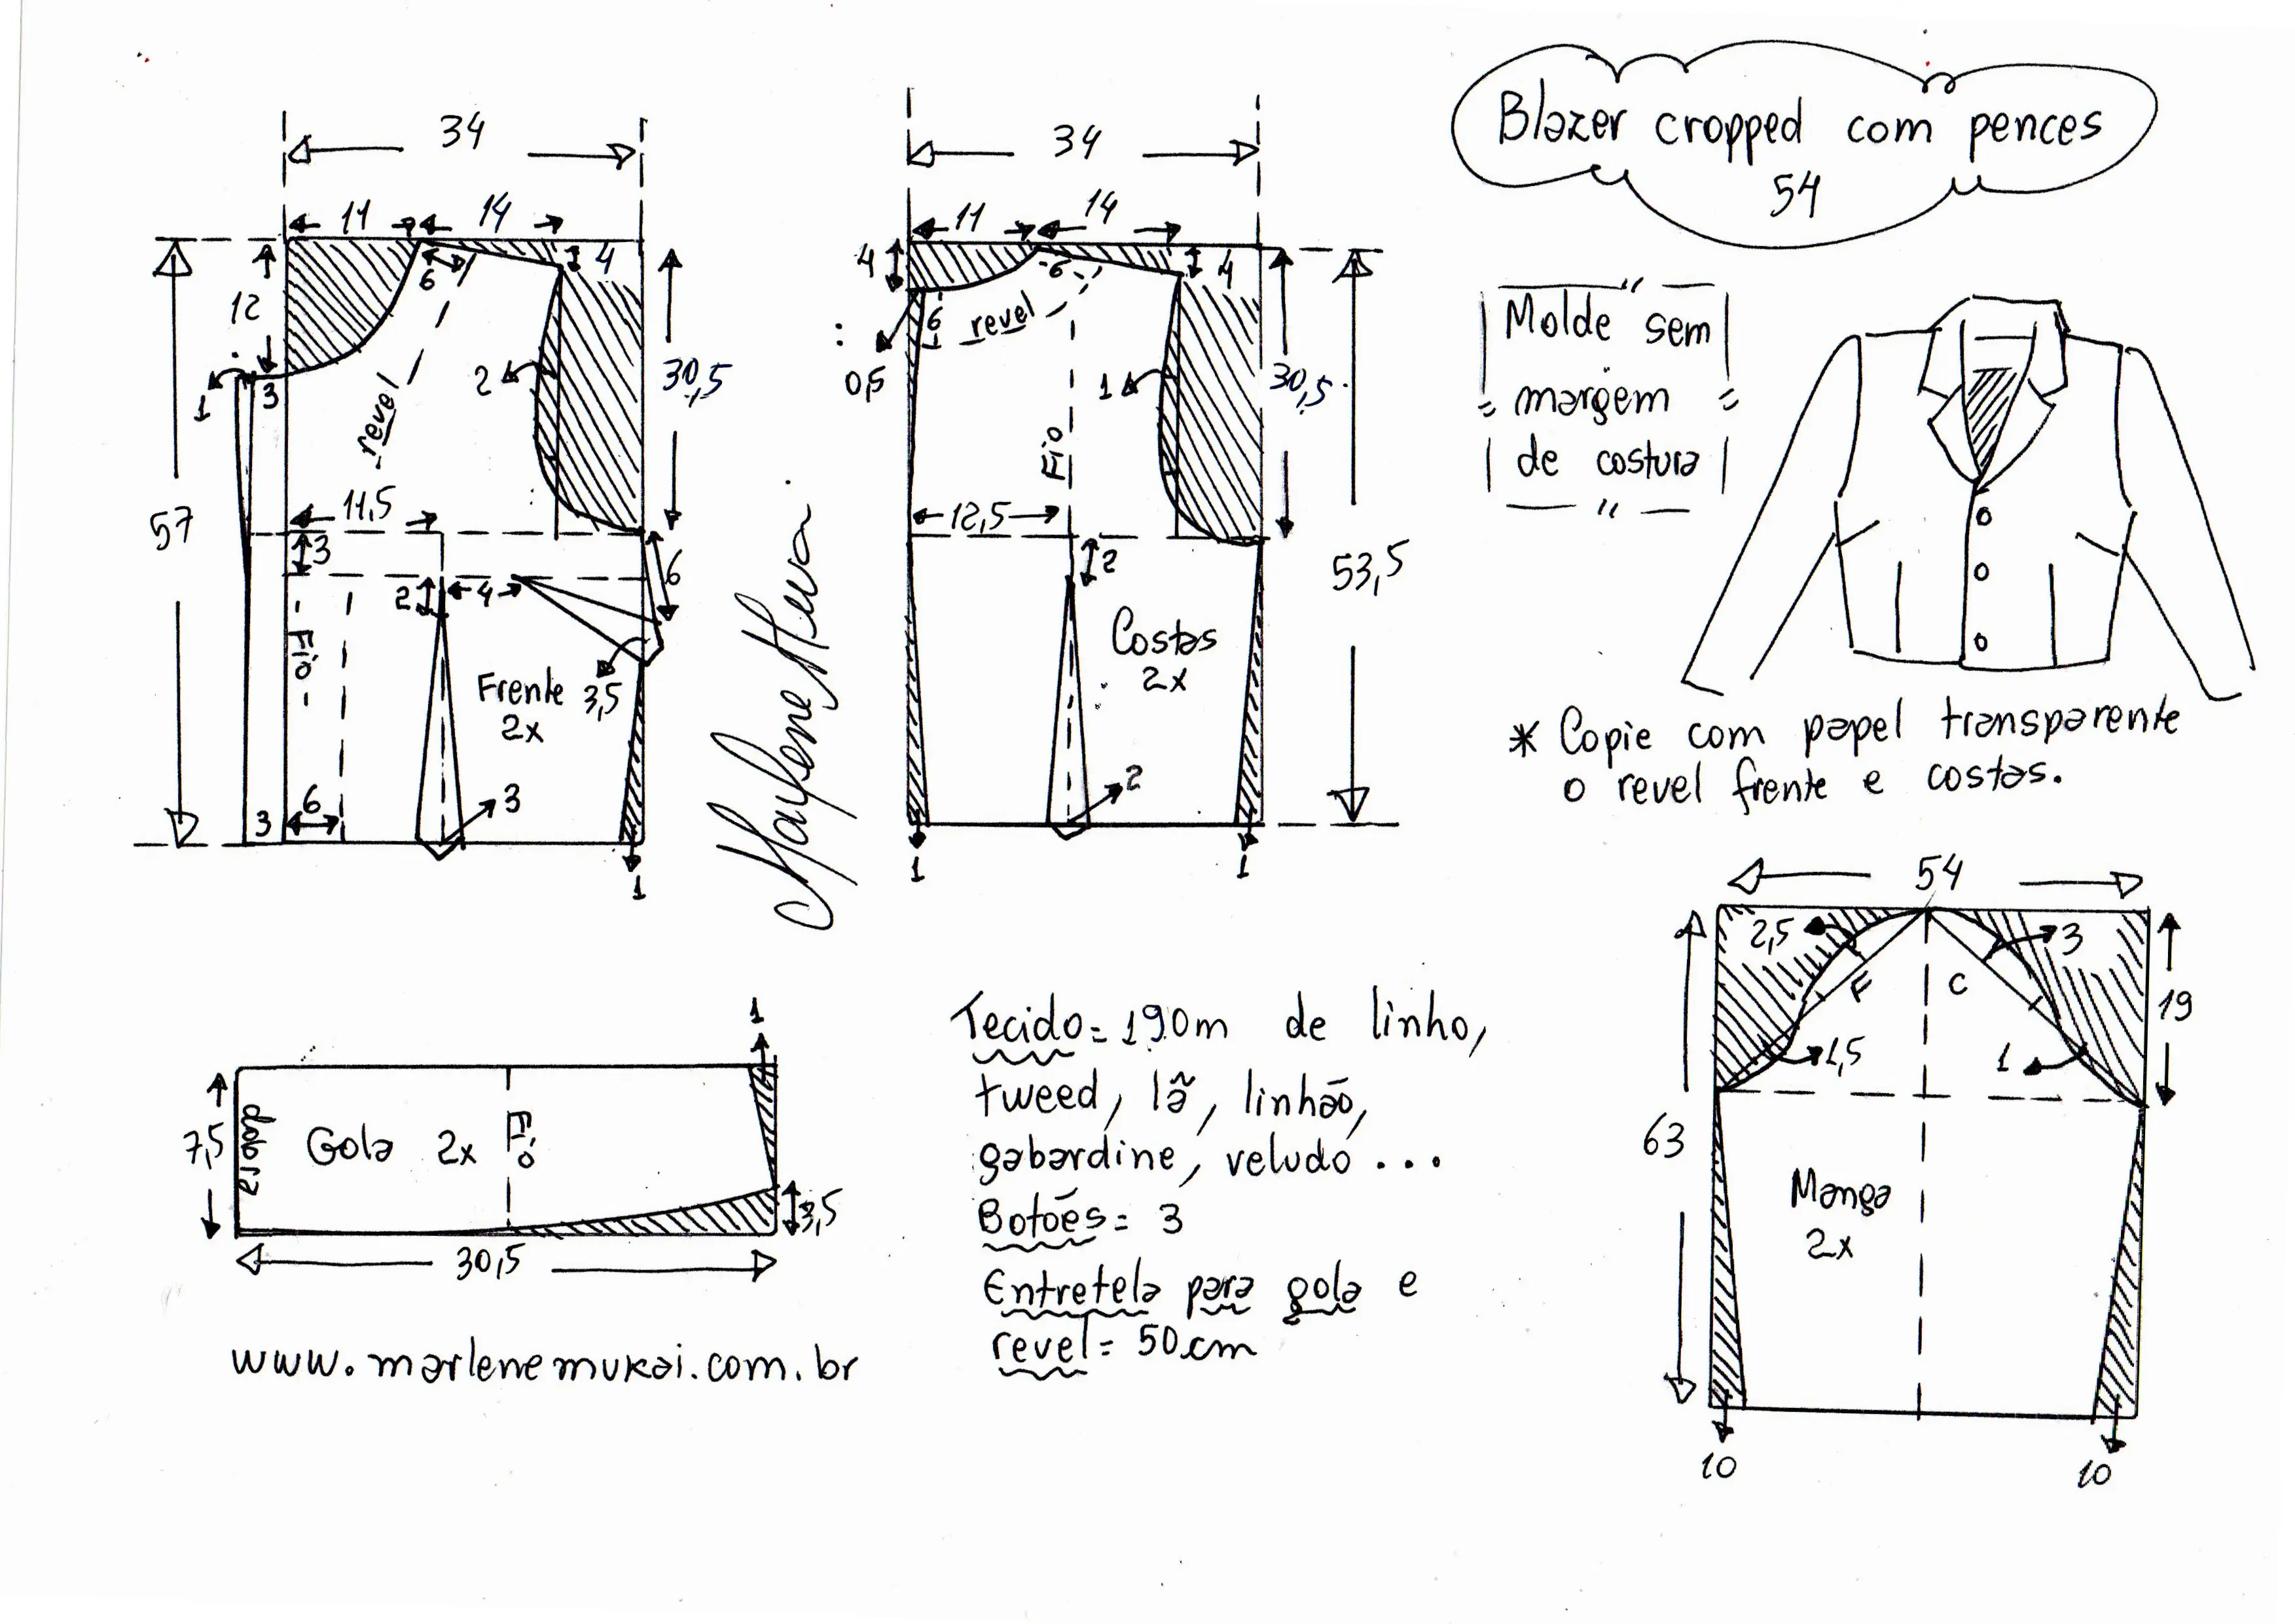 Blazer cropped com pences
54
34
11
14
6
4
12
1
3
2
30,5
revel
57
11,5
3
6
2
4
Fio
Frente
2x
3,5
3
6
3
1
34
11
14
4
6
4
6
revel
0,5
1
30,5
Fio
12,5
2
53,5
Costas
2x
2
1
1
Molde sem
margem
de costura
* Copie com papel transparente
o revel frente e costas.
1
7,5
dobra
Gola 2x
Fio
3,5
30,5
www.marlenemukai.com.br
Tecido= 1.90m de linho,
tweed, lã, linhão,
gabardine, veludo ...
Botões= 3
Entretela para gola e
revel= 50cm
54
2,5
3
F
C
19
1,5
1
63
Manga
2x
10
10